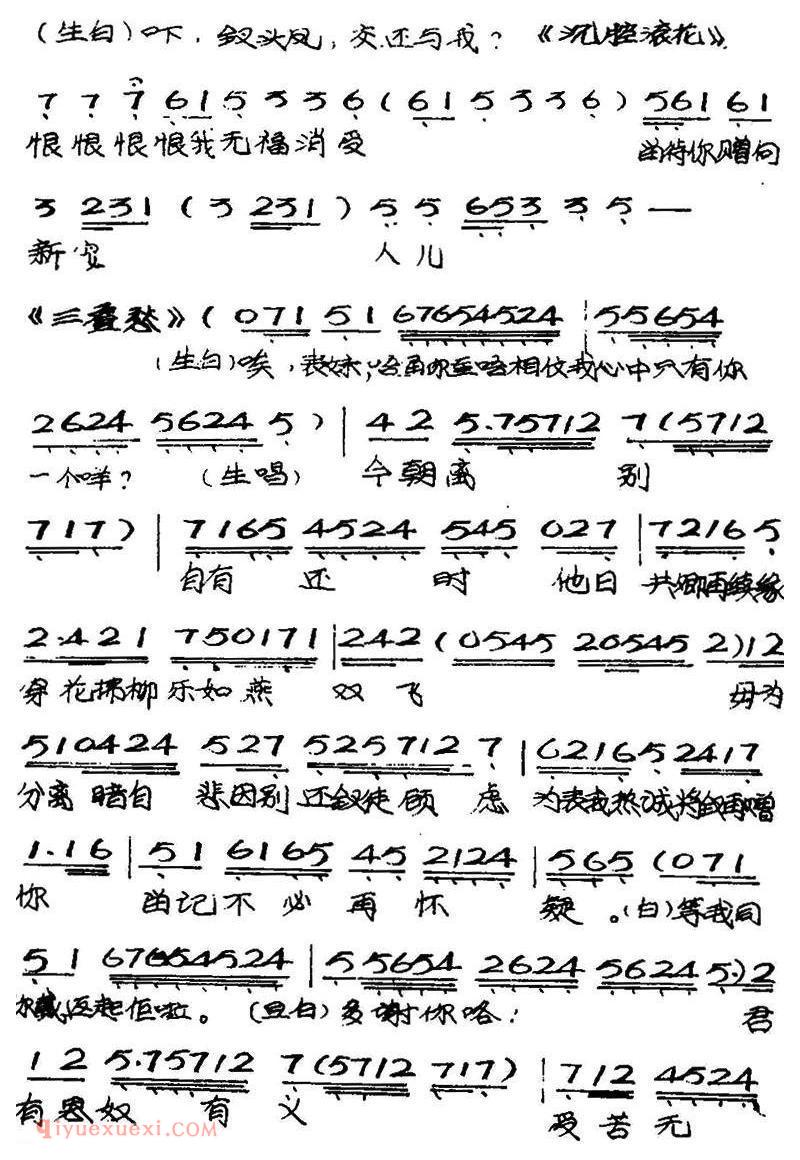 (生白)吓，钗头凤，交还与我？《沉腔滚花》
7 7 7 61 5 3 3 6 (61 5 3 3 6) 561 61
恨恨恨恨我无福消受 留待你赠向
3 231 (3 231) 5 5 653 3 5 —
新 人儿
《三叠愁》(071 51 67654524 | 55654
(生白)唉，表妹，我心中只有你
2624 56245) | 42 5.75712 7(5712
一个咩？(生唱) 今朝离 别
717) | 7165 4524 545 027 | 72165
自有 还 时 他日 共卿再续缘
2.421 750171 | 242 (0545 20545 2) 12
穿花拂柳 乐如燕 双飞 毋为
510424 527 525712 7 | 02165 2417
分离暗自 悲因别还钗徒顾虑 为表我热诚将钗再赠
1.16 | 51 6165 45 2124 | 565 (071
你 留记不必再怀 疑。(白)等我同
51 67654524 | 55654 2624 5624 5.) 2
你戴返起佢啦。(旦白)多谢你咯！ 君
12 5.75712 7(5712 717) | 712 4524
有恩奴 有 义 受苦无
qiyuexuexi.com